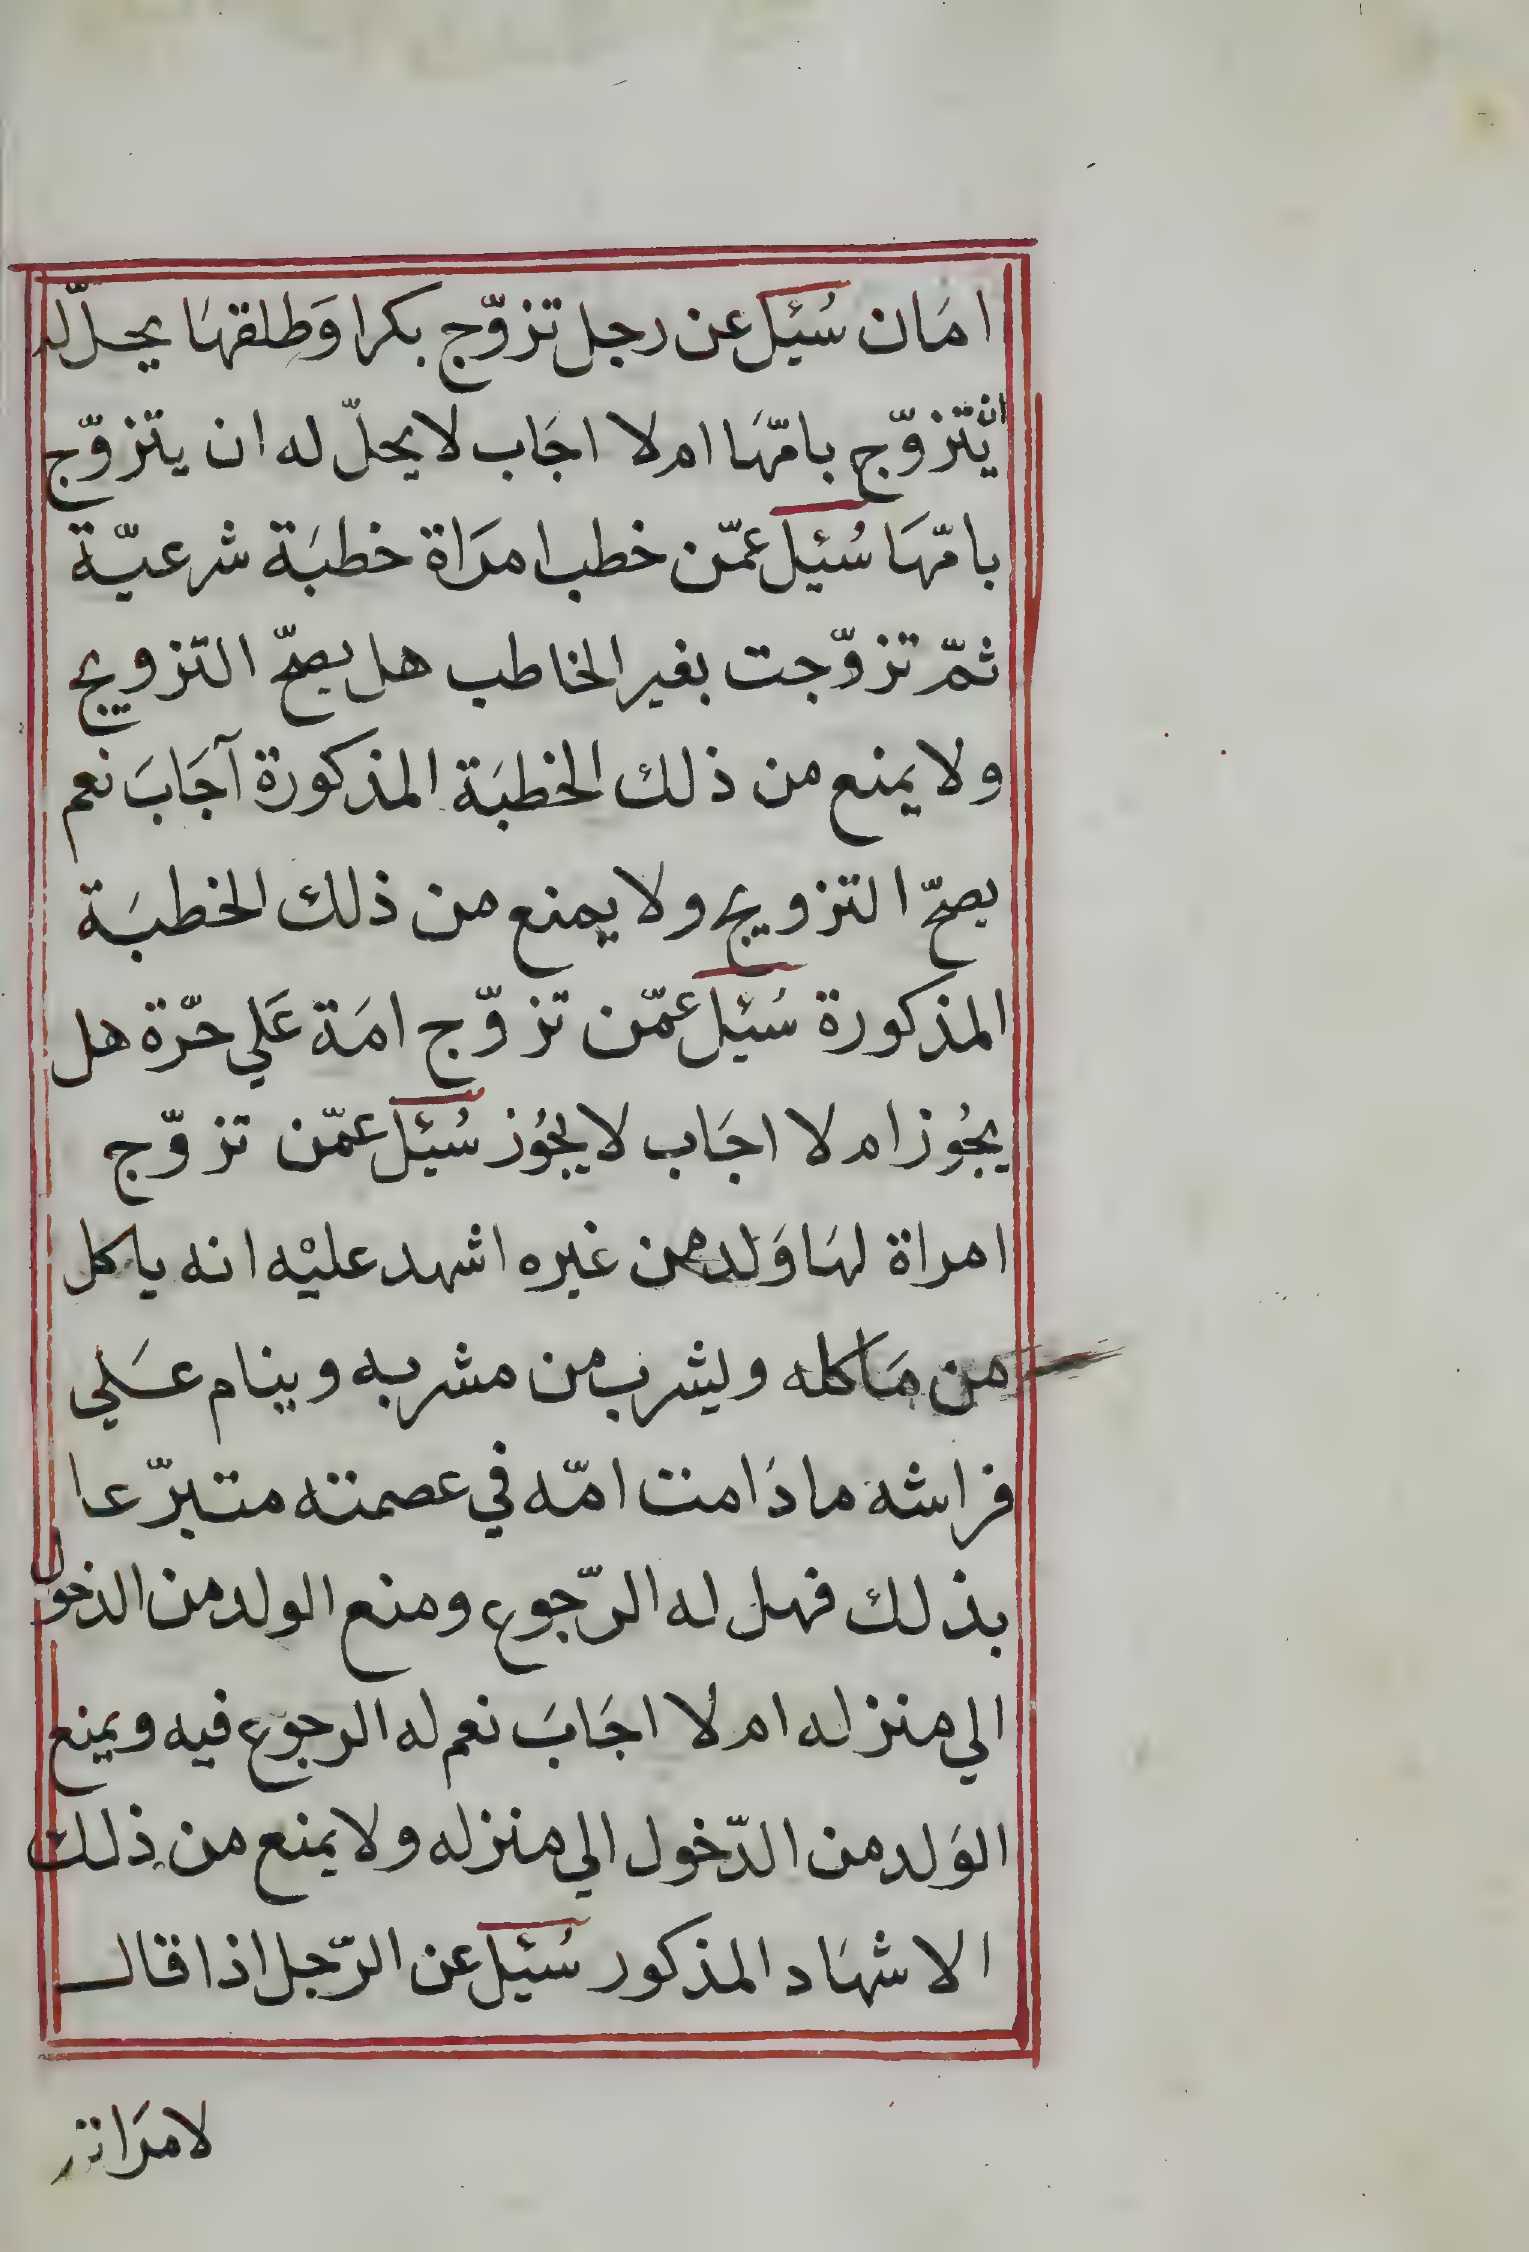 امَان سُئِل عن رجل تزوّج بكرا وَطلقهَا يحلّ له
ان يتزوّج بامّهَا ام لا اجَاب لا يحلّ له ان يتزوّج
بامّهَا سُئِل عمّن خطب امرَاة خطبَة شرعيّة
ثمّ تزوّجت بغير الخاطب هل يصحّ التزويج
ولا يمنع من ذلك الخطبَة المذكورة آجَابَ نعم
يصحّ التزويج ولا يمنع من ذلك الخطبَة
المذكورة سُئِل عمّن تزوّج امَة عَلي حرّة هل
يجُوز ام لا اجَاب لا يجُوز سُئِل عمّن تزوّج
امراة لهَا وَلد من غيره اشهد عليْه انه ياكل
من مَاكله ويشرب من مشربه وينام عَلي
فراشه ما دَامت امّه في عصمته متبرّعا
بذلك فهل له الرّجوع ومنع الولد من الدخول
الي منزله ام لا اجَابَ نعم له الرجوع فيه ويمنع
الوَلد من الدّخول الي منزله ولا يمنع من ذلك
الاشهَاد المذكور سُئِل عن الرّجل اذا قال
لامرَاته